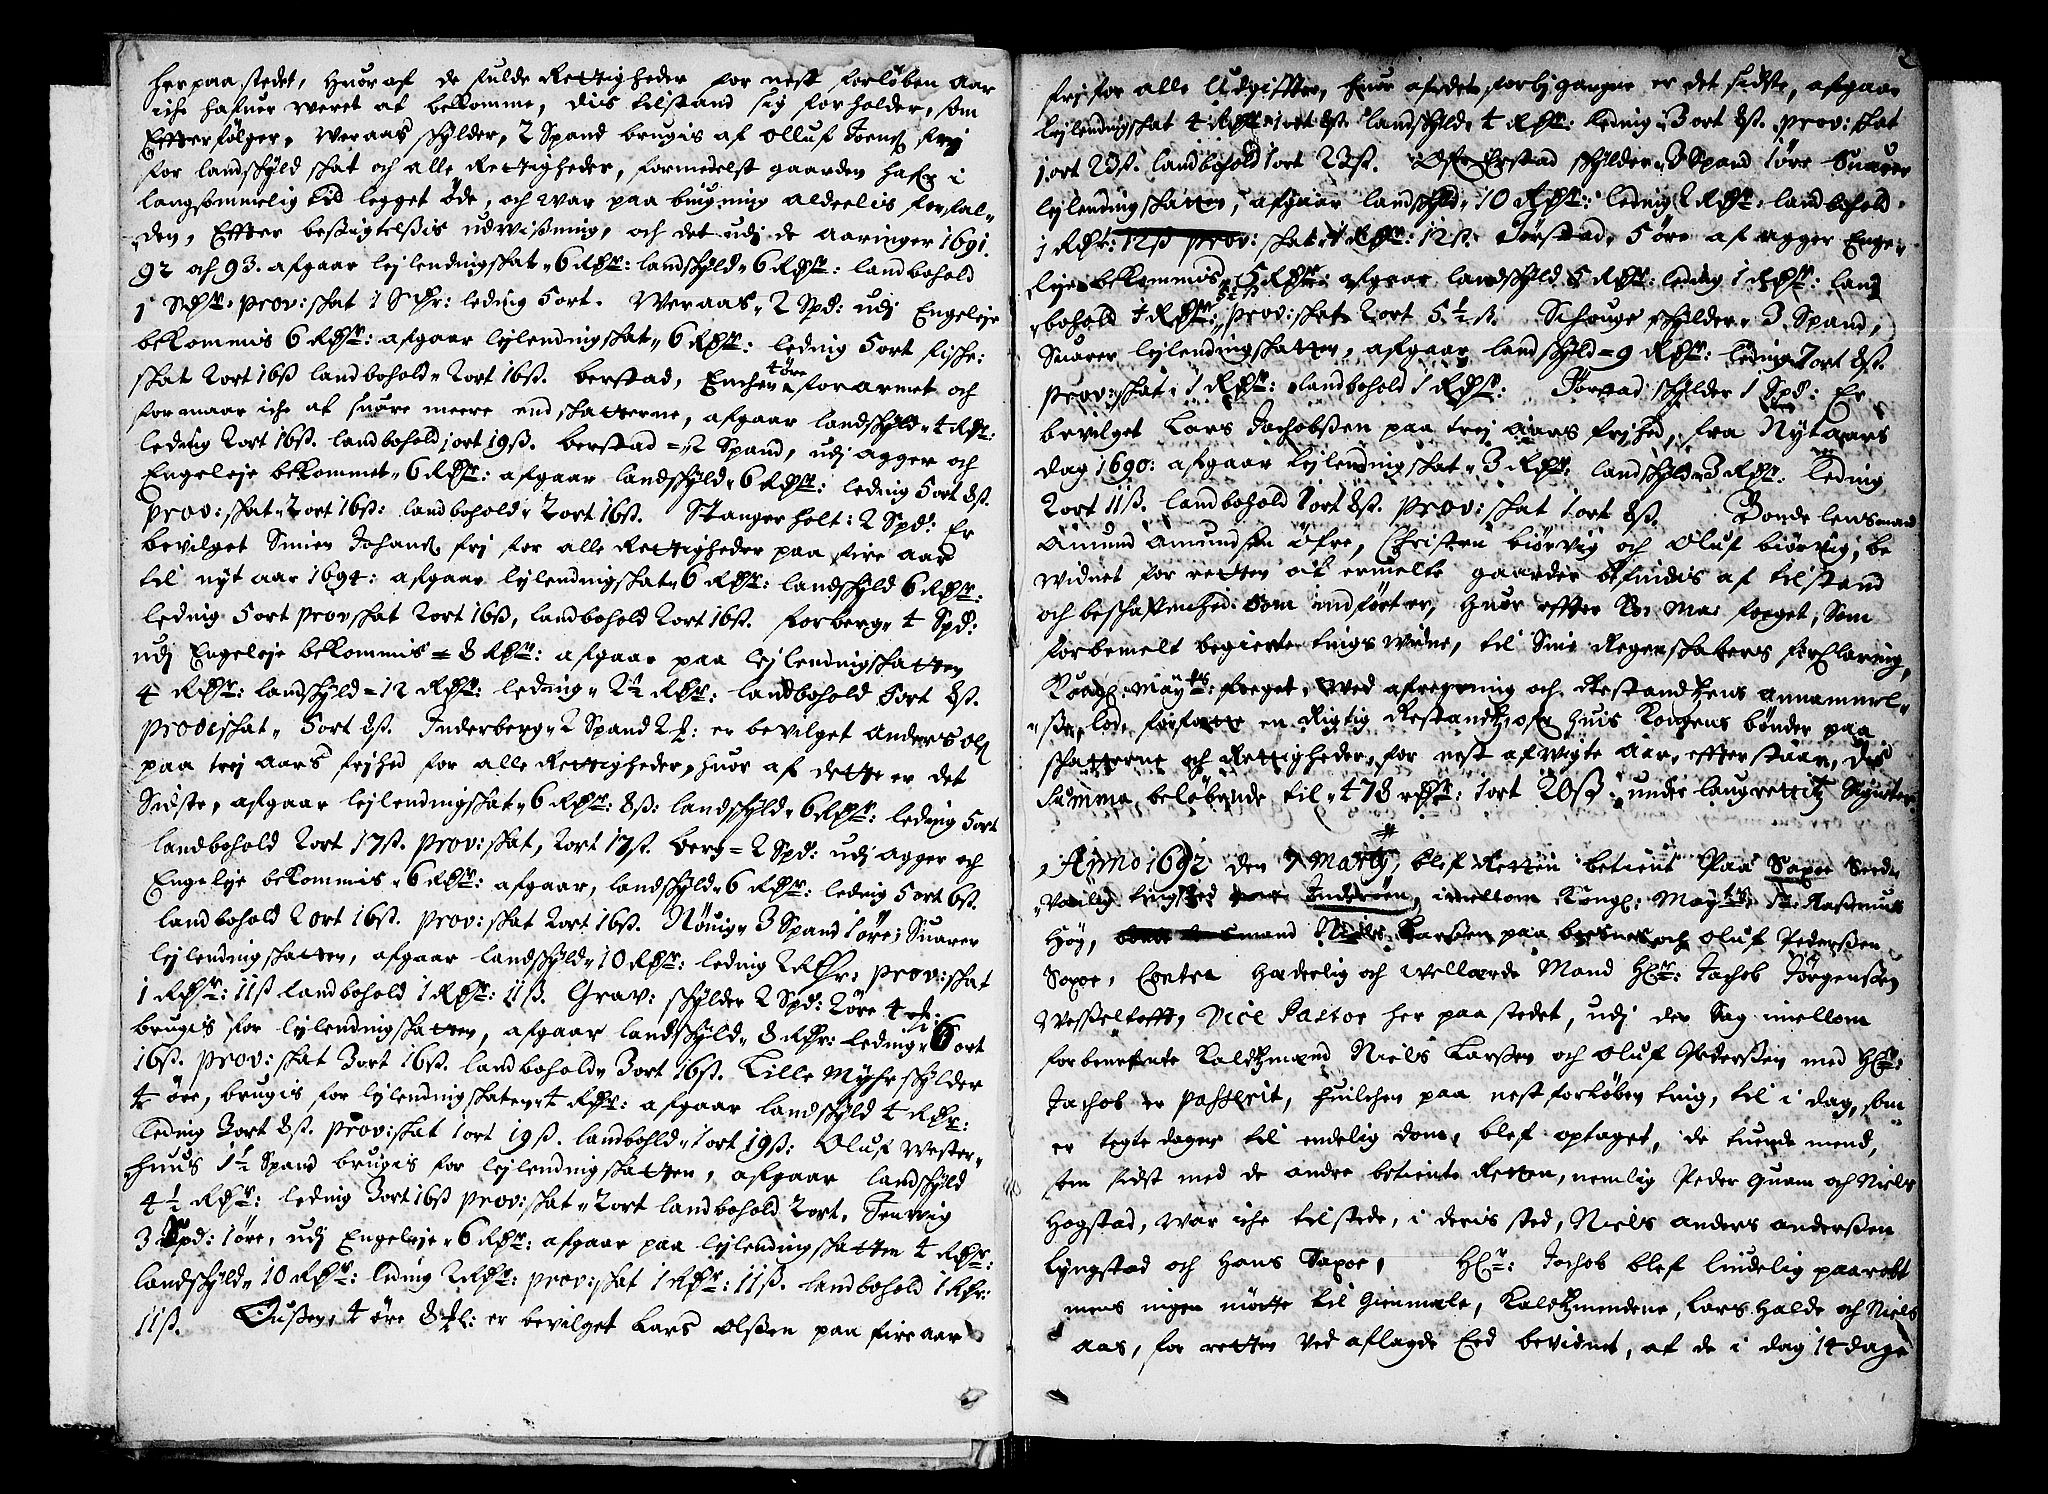 her paa stedet, huor af de fulde Rettigheder for nest forløben aar
iche hafuer weret at bekomme, dis tilstand sig forholder, som
Effterfølger, Weraas schylder, 2 Spand brugis af Olluf Joens: frj
for landschyld skat och alle Rettigheder, formedelst gaarden hafr i
langsommelig tid legget øde, och war paa bugning aldeelis forfal-
den, Effter besigtelsis udwisning, och det udj de aaringer 1691.
92 och 93. afgaar lejlendingskat 6 Rdr: landschyld 6 Rdr: landbohold
1 Rdr. prov: skat 1 Rdr: leding 5 ort. Weraas 2 Spd: udj Engeleje
bekommis 6 Rdr: afgaar lejlendingskat 6 Rdr: leding 5 ort fische:
skat 2 ort 16ß landbohold 2 ort 16ß. berstad, Enchen 1 øre forarmet och
formaar iche at suare meere end skatterne, afgaar landschyld 4 Rdr:
leding 2 ort 16ß. landbohold 1 ort 19ß. berstad = 2 Spand, udj agger och
Engeleje bekommet 6 Rdr: afgaar landschyld 6 Rdr: leding 5 ort 8ß.
Prov: skat 2 ort 16ß: landbohold 2 ort 16ß. Stangerholt: 2 Spd: Er
bevilget Simen Johans: frj for alle Rettigheder paa fire aar
til nyt aar 1694: afgaar lejlendingskat 6 Rdr: landschyld 6 Rdr:
leding 5 ort prov skat 2 ort 16ß, landbohold 2 ort 16ß. forberg 4 Spd:
udj Engeleje bekommis = 8 Rdr: afgaar paa lejlendingskatten
4 Rdr: landschyld = 12 Rdr: leding 2½ Rdr: landbohold 5 ort 8ß.
Proviskat 5 ort 8ß. Inderberg 2 Spand 2: er bevilget anders Ols
paa trej aars frjhed for alle Rettigheder, huor af dette er det
Sidste, afgaar lejlendingskat 6 Rdr: 8ß: landschyld 6 Rdr: leding 5 ort
landbohold 2 ort 17ß. prov: skat, 2 ort 17ß. berg = 2 Spd: udj agger och
Engeleje bekommis 6 Rdr: afgaar, landschyld 6 Rdr: leding 5 ort 6ß.
landbohold 2 ort 16ß. prov: skat 2 ort 16ß. 3 Spand 1 øre; Suarer
lejlendingskatten, afgaar landschyld 10 Rdr: leding 2 Rdr: prov: skat
1 Rdr: 11ß landbohold 1 Rdr: 11ß. Grav: schylder 2 Spd: 2 øre 4
brugis for lejlendingskatten, afgaar landschyld 8 Rdr: leding 6 ort
16ß. prov: skat 3 ort 16ß. landbohold 3 ort 16ß. Lille Myhr schylder
4 øre, brugis for lejlendingskaten 4 Rdr: afgaar landschyld 4 Rdr:
leding 3 ort 8ß. prov: skat 1 ort 19ß. landbohld 1 ort 19ß: Oluf Wester-
huus 1½ Spand brugis for lejlendingskatten, afgaar landschyld
4½ Rdr: leding 3 ort 16ß prov: skat 2 ort landbohold 2 ort.
3 Spd: 1 øre, udj Engeleje 6 Rdr: afgaar paa lejlendingskatten 4 Rdr:
landschyld 10 Rdr: leding 2 Rdr: prov: skat 1 Rdr: 11ß. landbohold 1 Rdr:
11ß. 4 øre 8: er bevilget Lars Olssen paa fire aar
frj for alle Udgiffter, huor af det forbigangne er det sidste, afgaar
lejlendingskat 4 Rdr 1 ort 8ß. landschyld 4 Rdr: leding 3 ort 8ß. prov: skat
1 ort 23ß. landbohold 1 ort 23ß. schylder 3 Spand 1 øre Suarer
lejlendingskatten, afgaar landschyld 10 Rdr: leding 2 Rdr. landbohold
1 Rdr: 12ß prov: skat 1 Rdr: 12ß. 5 øre af agger Enge-
leje bekommis 5 Rdr: afgaar landschyld 5 Rdr: leding 1 Rdr: land
bohold 1 Rdr: 5½ß prov: skat 2 ort 5½ß. Schouge schylder 3 Spand,
Suarer lejlendingskatten, afgaar landschyld = 9 Rdr: leding 7 ort 8ß.
prov: skat 1 Rdr: landbohold 1 Rdr: schylder 1 Spd: Er
bevilget Lars Jachobssen paa trej aars frjhed, fra Nytaars
dag 1690: afgaar lejlendingskat 3 Rdr: landschyld 3 Rdr: leding
2 ort 11ß. landbohold 1 ort 8ß. prov: skat 1 ort 8ß. Bonde lensmand
Amund Amundsen Øfre, Christen biørvig och Oluf biørvig, be
widnet for retten at ermelte gaarder befindis af tilstand
och beschaffenhed som indført er, huor effter Ko: Ma: foeget, Som
forbemelt begierte tings widne, til Sine Regenskabers forklaring,
Kongl: Maytz: foeget, wed afregning och Restandtzens annammel-
se, lod, forfatte en Rigtig Restandtz, ofr huis Kongens bønder paa
skatterne och Rettigheder, for nest afwigte aar, effterstaar, dis
Summa beløbende til 478 Rdr: 1 ort 20ß: under laugrettitz Signter
Anno 1692 den 7 Marty, blef Retten betient paa Saxoe Sæd-
vanlig tingsted Inderøen, imellom Kongl: Maytz: Rasmus
Høy, Niels Larssen paa och Oluf Pederssen
Saxoe, Contra Hæderlig och wellærde Mand Hr: Jachob Jørgenssen
Wesseltofft, Vice Pastor her paa stedet, udj den Sag imellom
forbenefnte Kaldtzmænd Niels Larssen och Oluf Pederssen med Hr:
Jachob er passerit, huilchen paa nestforløben ting, til i dag, som
er tegte dagen til endelig dom, blef optaget, de tuende mend,
som sidst med de andre betiente Retten, nemlig Peder Quam och Niels
Hogstad, war iche tilstede, i deris sted, Niels anders anderssen
Lyngstad och Hans Saxoe, Hr: Jachob blef lindelig paaraabt
mens ingen møtte til gienmæle, Kaldtzmendene, Lars Halde och Niels
aas, for retten ved aflagde Eed bevidnet, at de i dag 14 dage